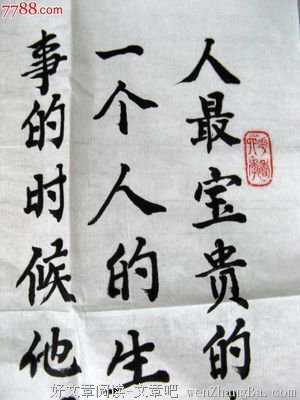 7788.com
人最宝贵的
一个人的生
事的时候他
好文章阅读-文章吧 wenZhangBa.com